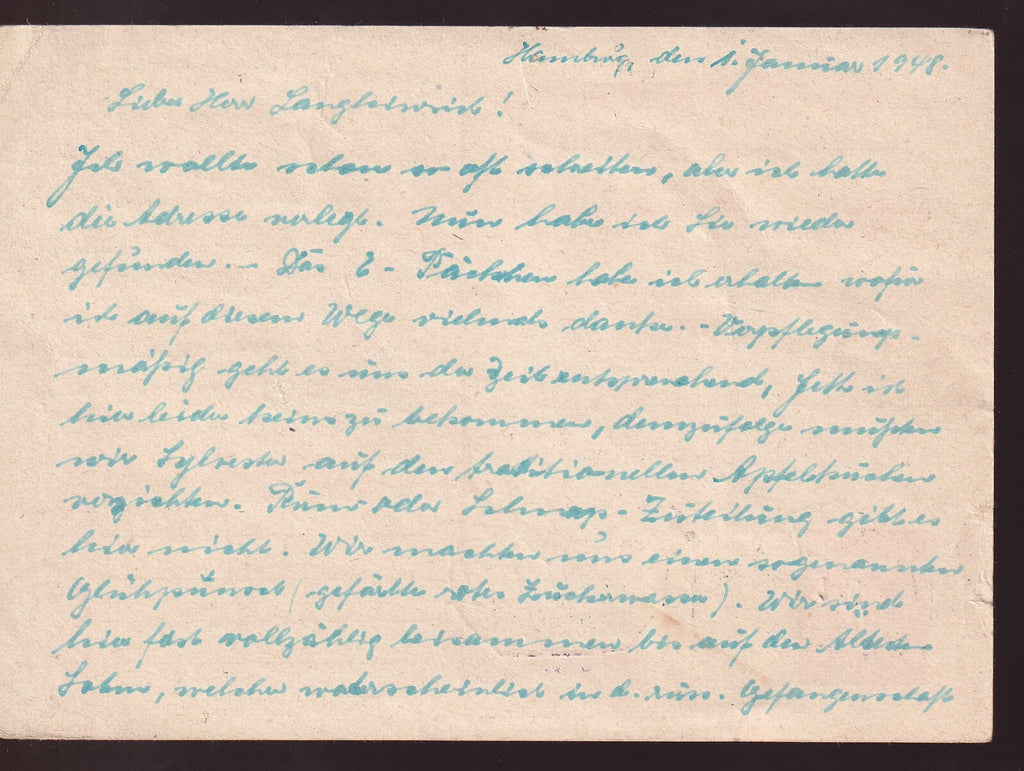 Hamburg, den 1. Januar 1948.
Lieber Herr
Ich wollte schon so oft schreiben, aber ich hatte
die Adresse verlegt. Nun habe ich Sie wieder
gefunden. – Das E-Päckchen habe ich erhalten wofür
ich auf diesem Wege vielmals danke. – Verpflegungs-
mäßig geht es uns der Zeit entsprechend, Fett ist
hier leider keins zu bekommen, demzufolge mußten
wir Sylvester auf den traditionellen Apfelkuchen
verzichten. Rum oder Schnaps-Zuteilung gibt es
hier nicht. Wir machten uns einen sogenannten
Glühpunsch (gefärbtes rotes Zuckerwasser). Wir sind
hier fast vollzählig beisammen bis auf den Ältesten
Sohn, welcher wahrscheinlich in d. russ. Gefangenschaft